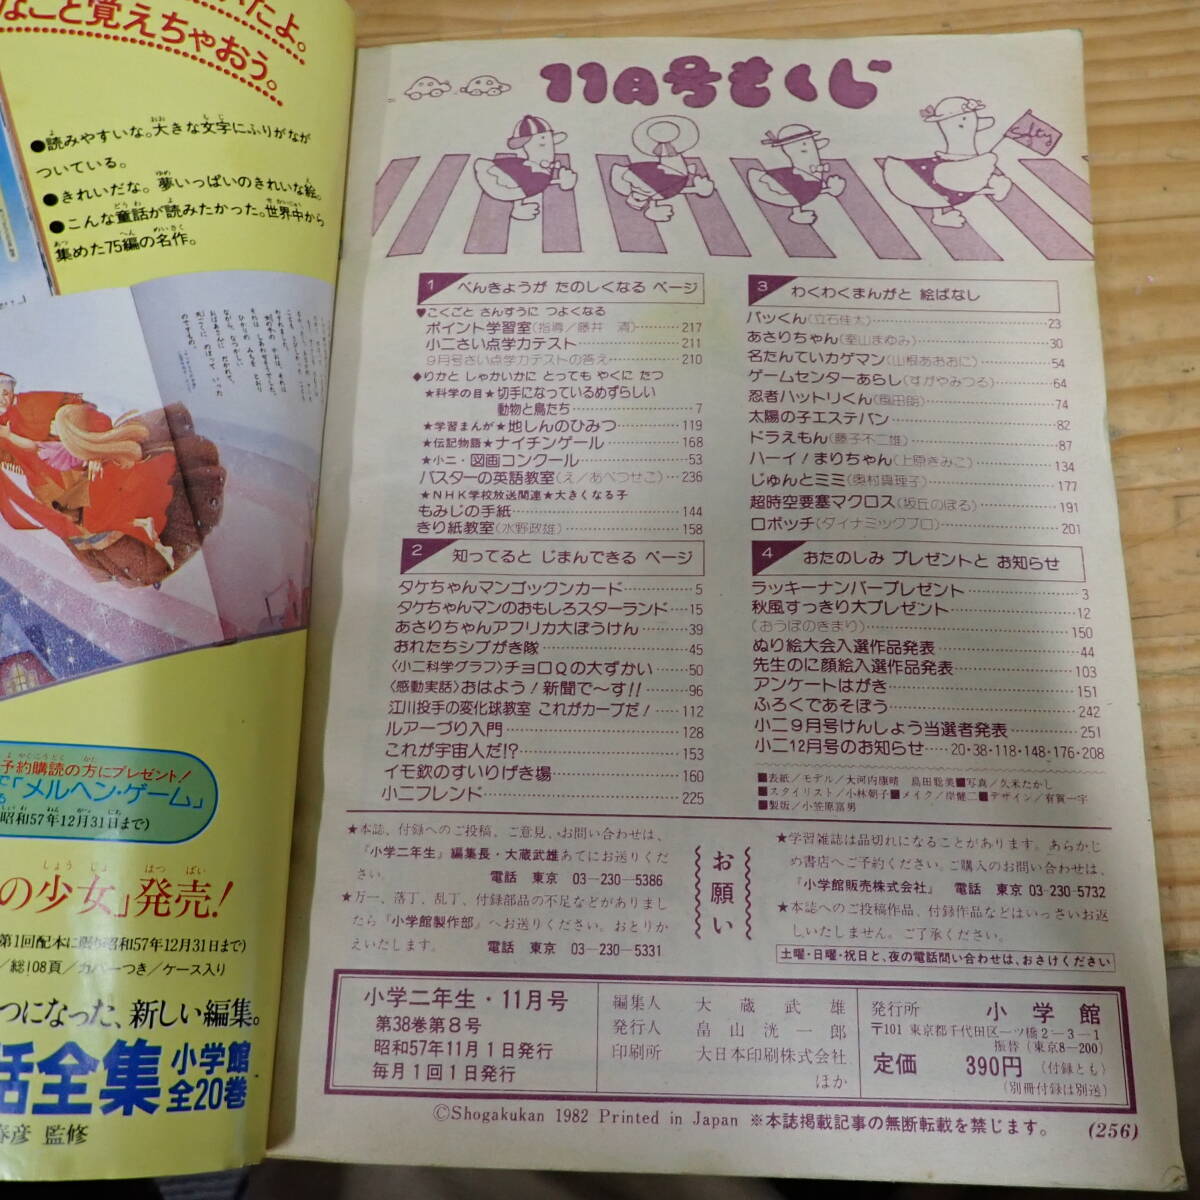 たよ。
なこと覚えちゃおう。
●読みやすいな。大きな文字にふりがなが
ついている。
●きれいだな。夢いっぱいのきれいな絵。
●こんな童話が読みたかった。世界中から
集めた75編の名作。
予約購読の方にプレゼント!
「メルヘン・ゲーム」
昭和57年12月31日まで)
の少女」発売!
第1回配本に限り昭和57年12月31日まで)
/総108頁/カバーつき/ケース入り
つになった、新しい編集。
話全集 小学館
全20巻
春彦 監修
11月号もくじ
1 べんきょうが たのしくなる ページ
♥こくごと さんすうに つよくなる
ポイント学習室(指導/藤井 清)………217
小二さい点学力テスト………211
9月号さい点学力テストの答え………210
◆りかと しゃかいかに とっても やくに たつ
★科学の目★切手になっているめずらしい
動物と鳥たち………7
★学習まんが★地しんのひみつ………119
★伝記物語★ナイチンゲール………168
★小二・図画コンクール………53
バスターの英語教室(え/あべつせこ)…236
★NHK学校放送関連★大きくなる子
もみじの手紙………144
きり紙教室(水野政雄)………158
2 知ってると じまんできる ページ
タケちゃんマンゴックンカード………5
タケちゃんマンのおもしろスターランド…15
あさりちゃんアフリカ大ぼうけん………39
おれたちシブがき隊………45
〈小二科学グラフ〉チョロQの大ずかい………50
〈感動実話〉おはよう!新聞で〜す!!………96
江川投手の変化球教室 これがカーブだ!…112
ルアーづり入門………128
これが宇宙人だ!?………153
イモ欽のすいりげき場………160
小二フレンド………225
3 わくわくまんがと 絵ばなし
バッくん(立石佳太)………23
あさりちゃん(室山まゆみ)………30
名たんていカゲマン(山根あおおに)………54
ゲームセンターあらし(すがやみつる)………64
忍者ハットリくん(風田朗)………74
太陽の子エステバン………82
ドラえもん(藤子不二雄)………87
ハーイ!まりちゃん(上原きみこ)………134
じゅんとミミ(奥村真理子)………177
超時空要塞マクロス(坂丘のぼる)………191
ロボッチ(ダイナミックプロ)………201
4 おたのしみ プレゼントと お知らせ
ラッキーナンバープレゼント………3
秋風すっきり大プレゼント………12
(おうぼのきまり)………150
ぬり絵大会入選作品発表………44
先生のに顔絵入選作品発表………103
アンケートはがき………151
ふろくであそぼう………242
小二9月号けんしょう当選者発表………251
小二12月号のお知らせ……20・38・118・148・176・208
■表紙/モデル/大河内康晴 島田聡美■写真/久米たかし
■スタイリスト/小林朝子■メイク/岸健二■デザイン/有賀一字
■製版/小笠原富男
★本誌、付録へのご投稿、ご意見、お問い合わせは、
『小学二年生』編集長・大蔵武雄あてにお送りくだ
さい。 電話 東京 03―230―5386
★万一、落丁、乱丁、付録部品の不足などがありまし
たら『小学館製作部』へお送りください。おとりか
えいたします。 電話 東京 03―230―5331
お願い
★学習雑誌は品切れになることがあります。あらかじ
め書店へご予約ください。ご購入のお問い合わせは、
『小学館販売株式会社』 電話 東京 03-230-5732
★本誌へのご投稿作品、付録作品などはいっさいお返
しいたしません。ご了承ください。
土曜・日曜・祝日と、夜の電話問い合わせは、おさけください
小学二年生・11月号
第38巻第8号
昭和57年11月1日発行
毎月1回1日発行
編集人 大蔵武雄
発行人 畠山洸一郎
印刷所 大日本印刷株式会社
ほか
発行所 小学館
〒101 東京都千代田区一ツ橋2−3−1
振替(東京8−200)
定価 390円(付録とも)
(別冊付録は別送)
©Shogakukan 1982 Printed in Japan ※本誌掲載記事の無断転載を禁じます。
(256)